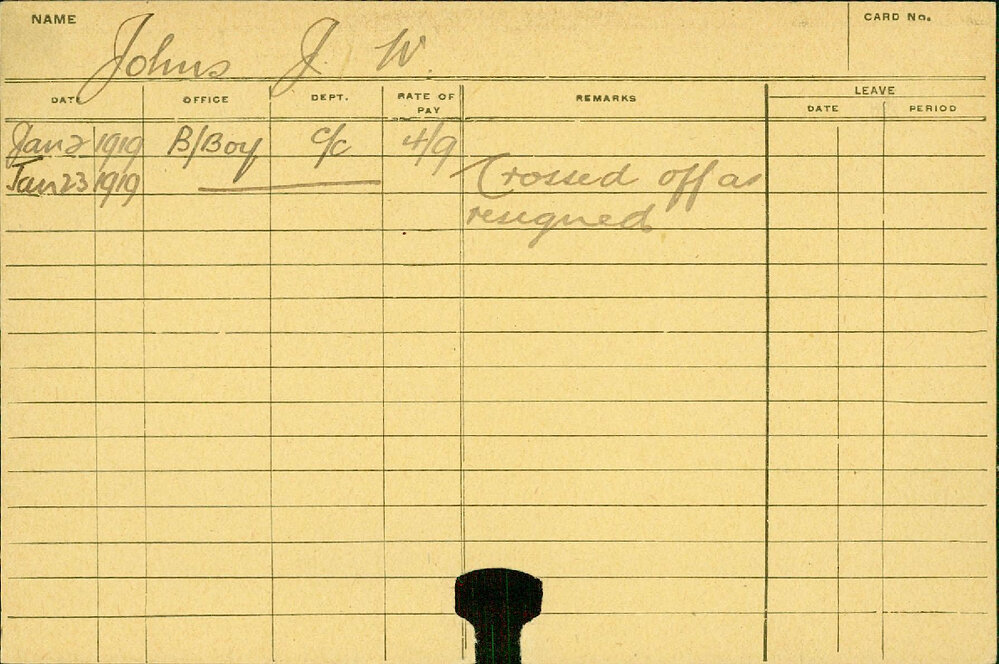 NAME Johns J. W. CARD No.
DATE OFFICE DEPT. RATE OF PAY REMARKS LEAVE
DATE PERIOD
Jan 2 1919 B/Boy C/C 4/9
Jan 23 1919 Crossed off as
resigned